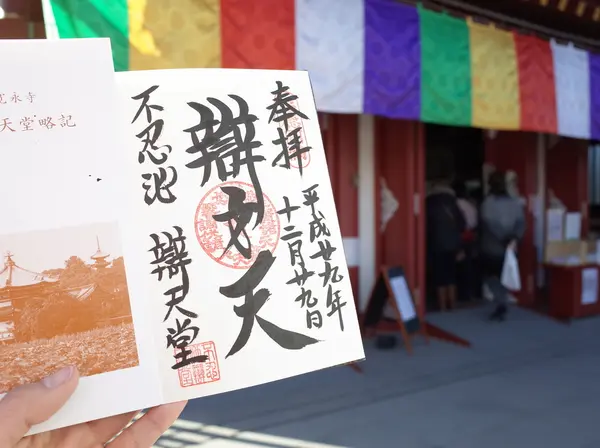 寛永寺
天堂略記
奉拝
平成廿九年
十二月廿九日
辯才天
不忍池
辯天堂